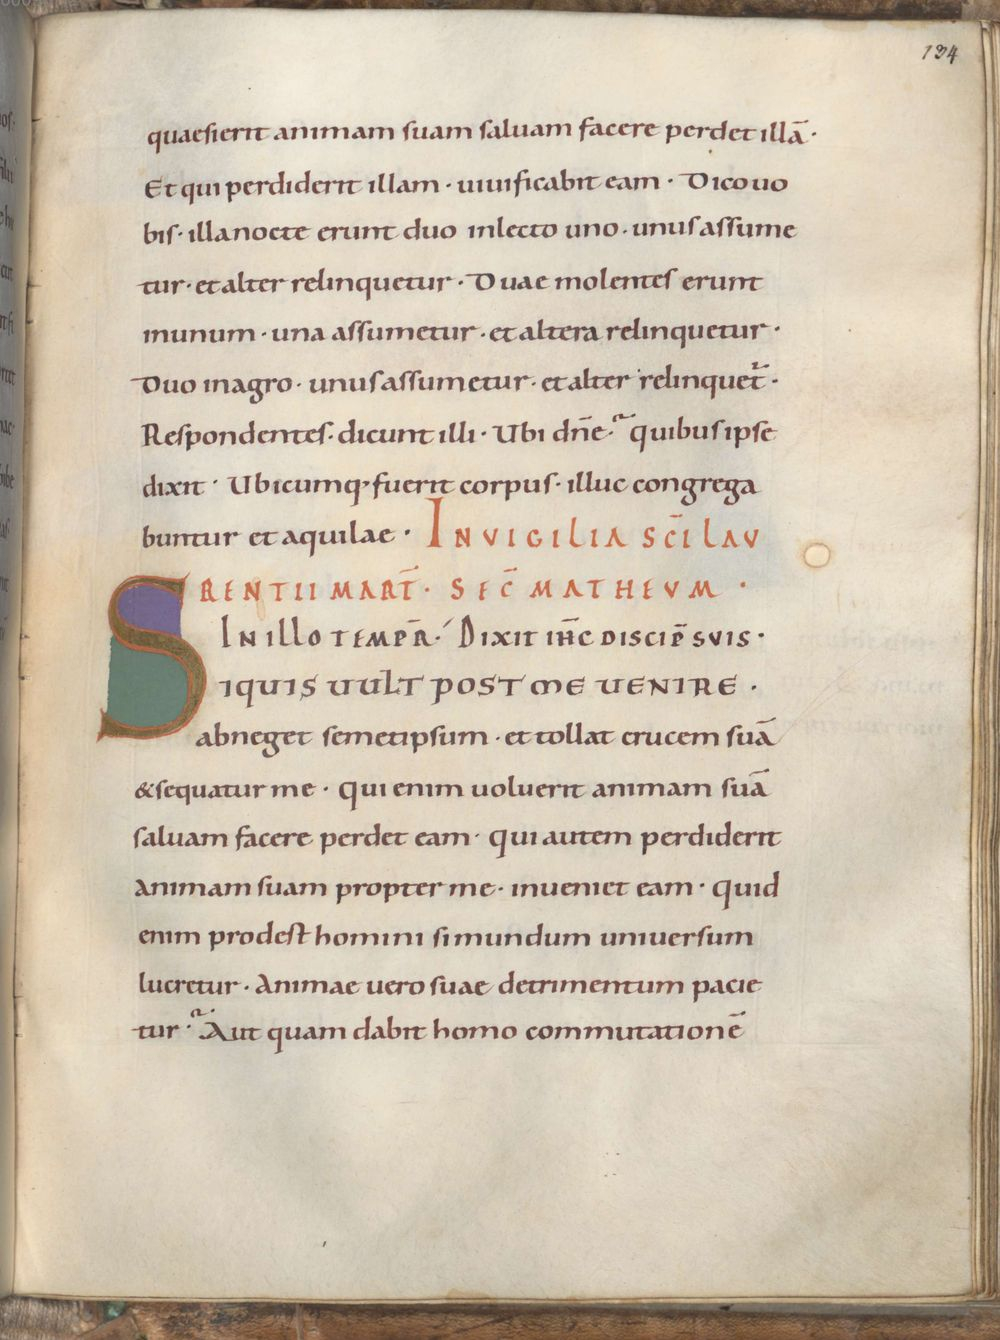 134
quaesierit animam suam saluam facere perdet illā·
Et qui perdiderit illam · uiuificabit eam · Dico uo
bis · illa nocte erunt duo inlecto uno · unus assume
tur · et alter relinquetur · Duae molentes erunt
inunum · una assumetur · et altera relinquetur ·
Duo inagro · unus assumetur · et alter relinquet̄ ·
Respondentes · dicunt illi · Ubi dn̄e ? quibus ipse
dixit · Ubicumq· fuerit corpus · illuc congrega
buntur et aquilae · IN VIGILIA SC̄I LAV
RENTII MART̄ · SEC̄ MATHEVM ·
IN ILLO TEMPR̄ · DIXIT IHC̄ DISCIP̄ SVIS ·
SIQUIS UULT POST ME UENIRE ·
abneget semetipsum · et tollat crucem suā
& sequatur me · qui enim uoluerit animam suā
saluam facere perdet eam · qui autem perdiderit
animam suam propter me · inueniet eam · quid
enim prodest homini si mundum uniuersum
lucretur · Animae uero suae detrimentum pacie
tur ? Aut quam dabit homo commutationē